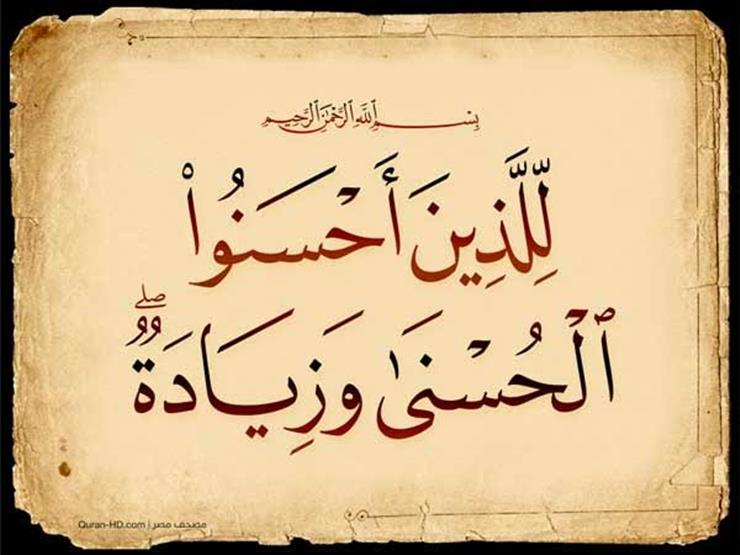 بِسْمِ ٱللَّهِ ٱلرَّحْمَٰنِ ٱلرَّحِيمِ
لِّلَّذِينَ أَحْسَنُوا۟
ٱلْحُسْنَىٰ وَزِيَادَةٌۭ ۖ
Quran-HD.com | مصحف مصر